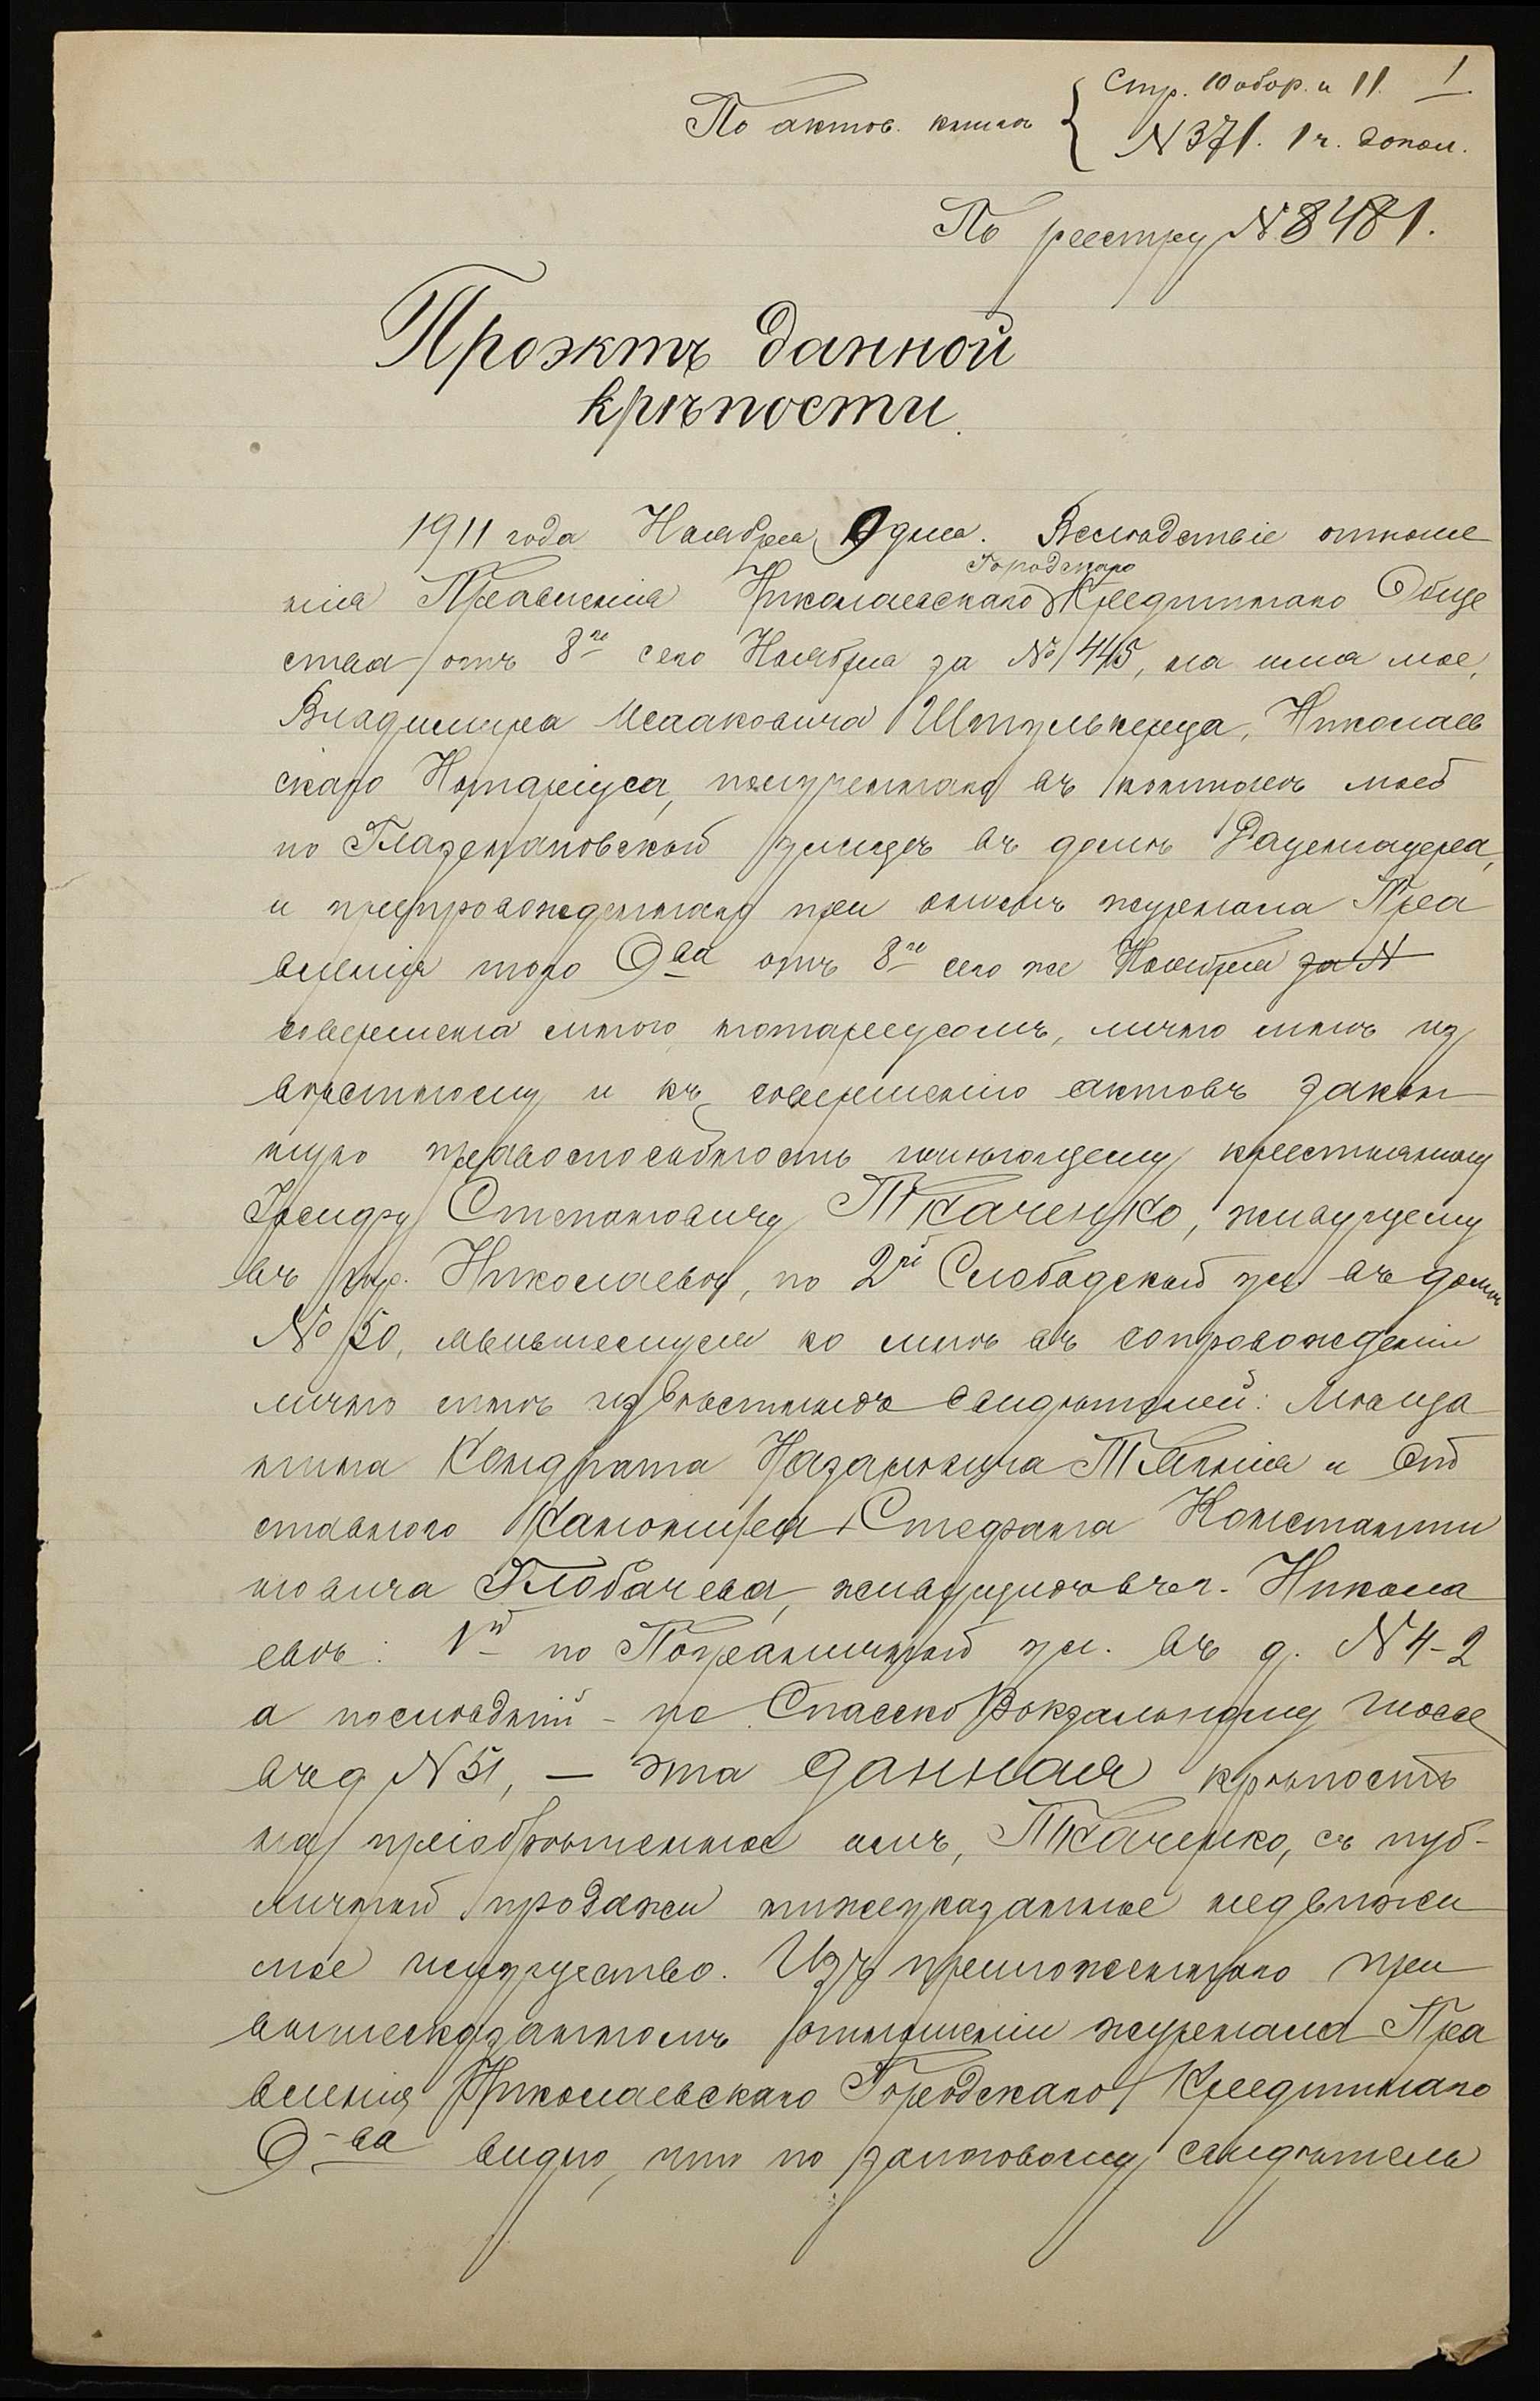 Стр. 10 обор. и 11. 1
По актов. книгѣ
N 371. 1 ч. допол.
По реестру N 8481.
Проэктъ данной
крѣпости.
1911 года Ноября 9 дня. Вслѣдствіе отноше
Городскаго
нія Правленія Николаевскаго Кредитнаго Обще
ства отъ 8го сего Ноября за № 1445, на имя мое,
Владимира Исааковича Штульберга, Николаев
скаго Нотаріуса, полученнаго въ конторѣ моей
по Глазенаповской улицѣ въ домѣ
и препровожденнаго при ономъ журнала Пра
вленія тогоOva отъ 8го сего же Ноября за N
совершена мною, нотаріусомъ, лично мнѣ из
вѣстному и къ совершенію актовъ закон
ную правоспособность имѣющему крестьянину
Степановичу Ткаченко, живущему
въ гор. Николаевѣ, по 2й Слободской ул. въ домѣ
№ 50, явившемуся ко мнѣ въ сопровожденіи
лично мнѣ извѣстныхъ свидѣтелей: мѣща
нина Кондрата Назарьевича и От
ставного Канонира Стефана Константи
новича Глобачева, живущихъ въ г. Никола
евѣ: 1й по Пограничной ул. въ д. N 4-2
а послѣдній - по Спасско Вокзальному шоссе
въ д N 51, — эта данная крѣпость
на пріобрѣтенное имъ, Ткаченко, съ пуб-
личной продажи нижеуказанное недвижи
мое имущество. Изъ приложеннаго при
вышесказанномъ отношеніи журнала Пра
вленія Николаевскаго Городскаго Кредитнаго
О-ва видно, что по залоговому свидѣтель